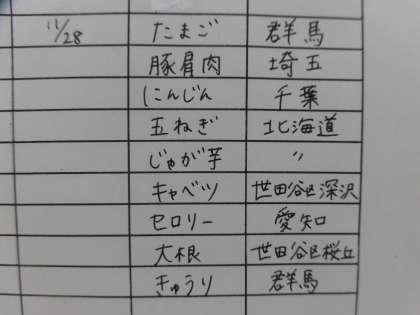 11/28 たまご 群馬
豚肩肉 埼玉
にんじん 千葉
玉ねぎ 北海道
じゃが芋 〃
キャベツ 世田谷区深沢
セロリー 愛知
大根 世田谷区桜丘
きゅうり 群馬